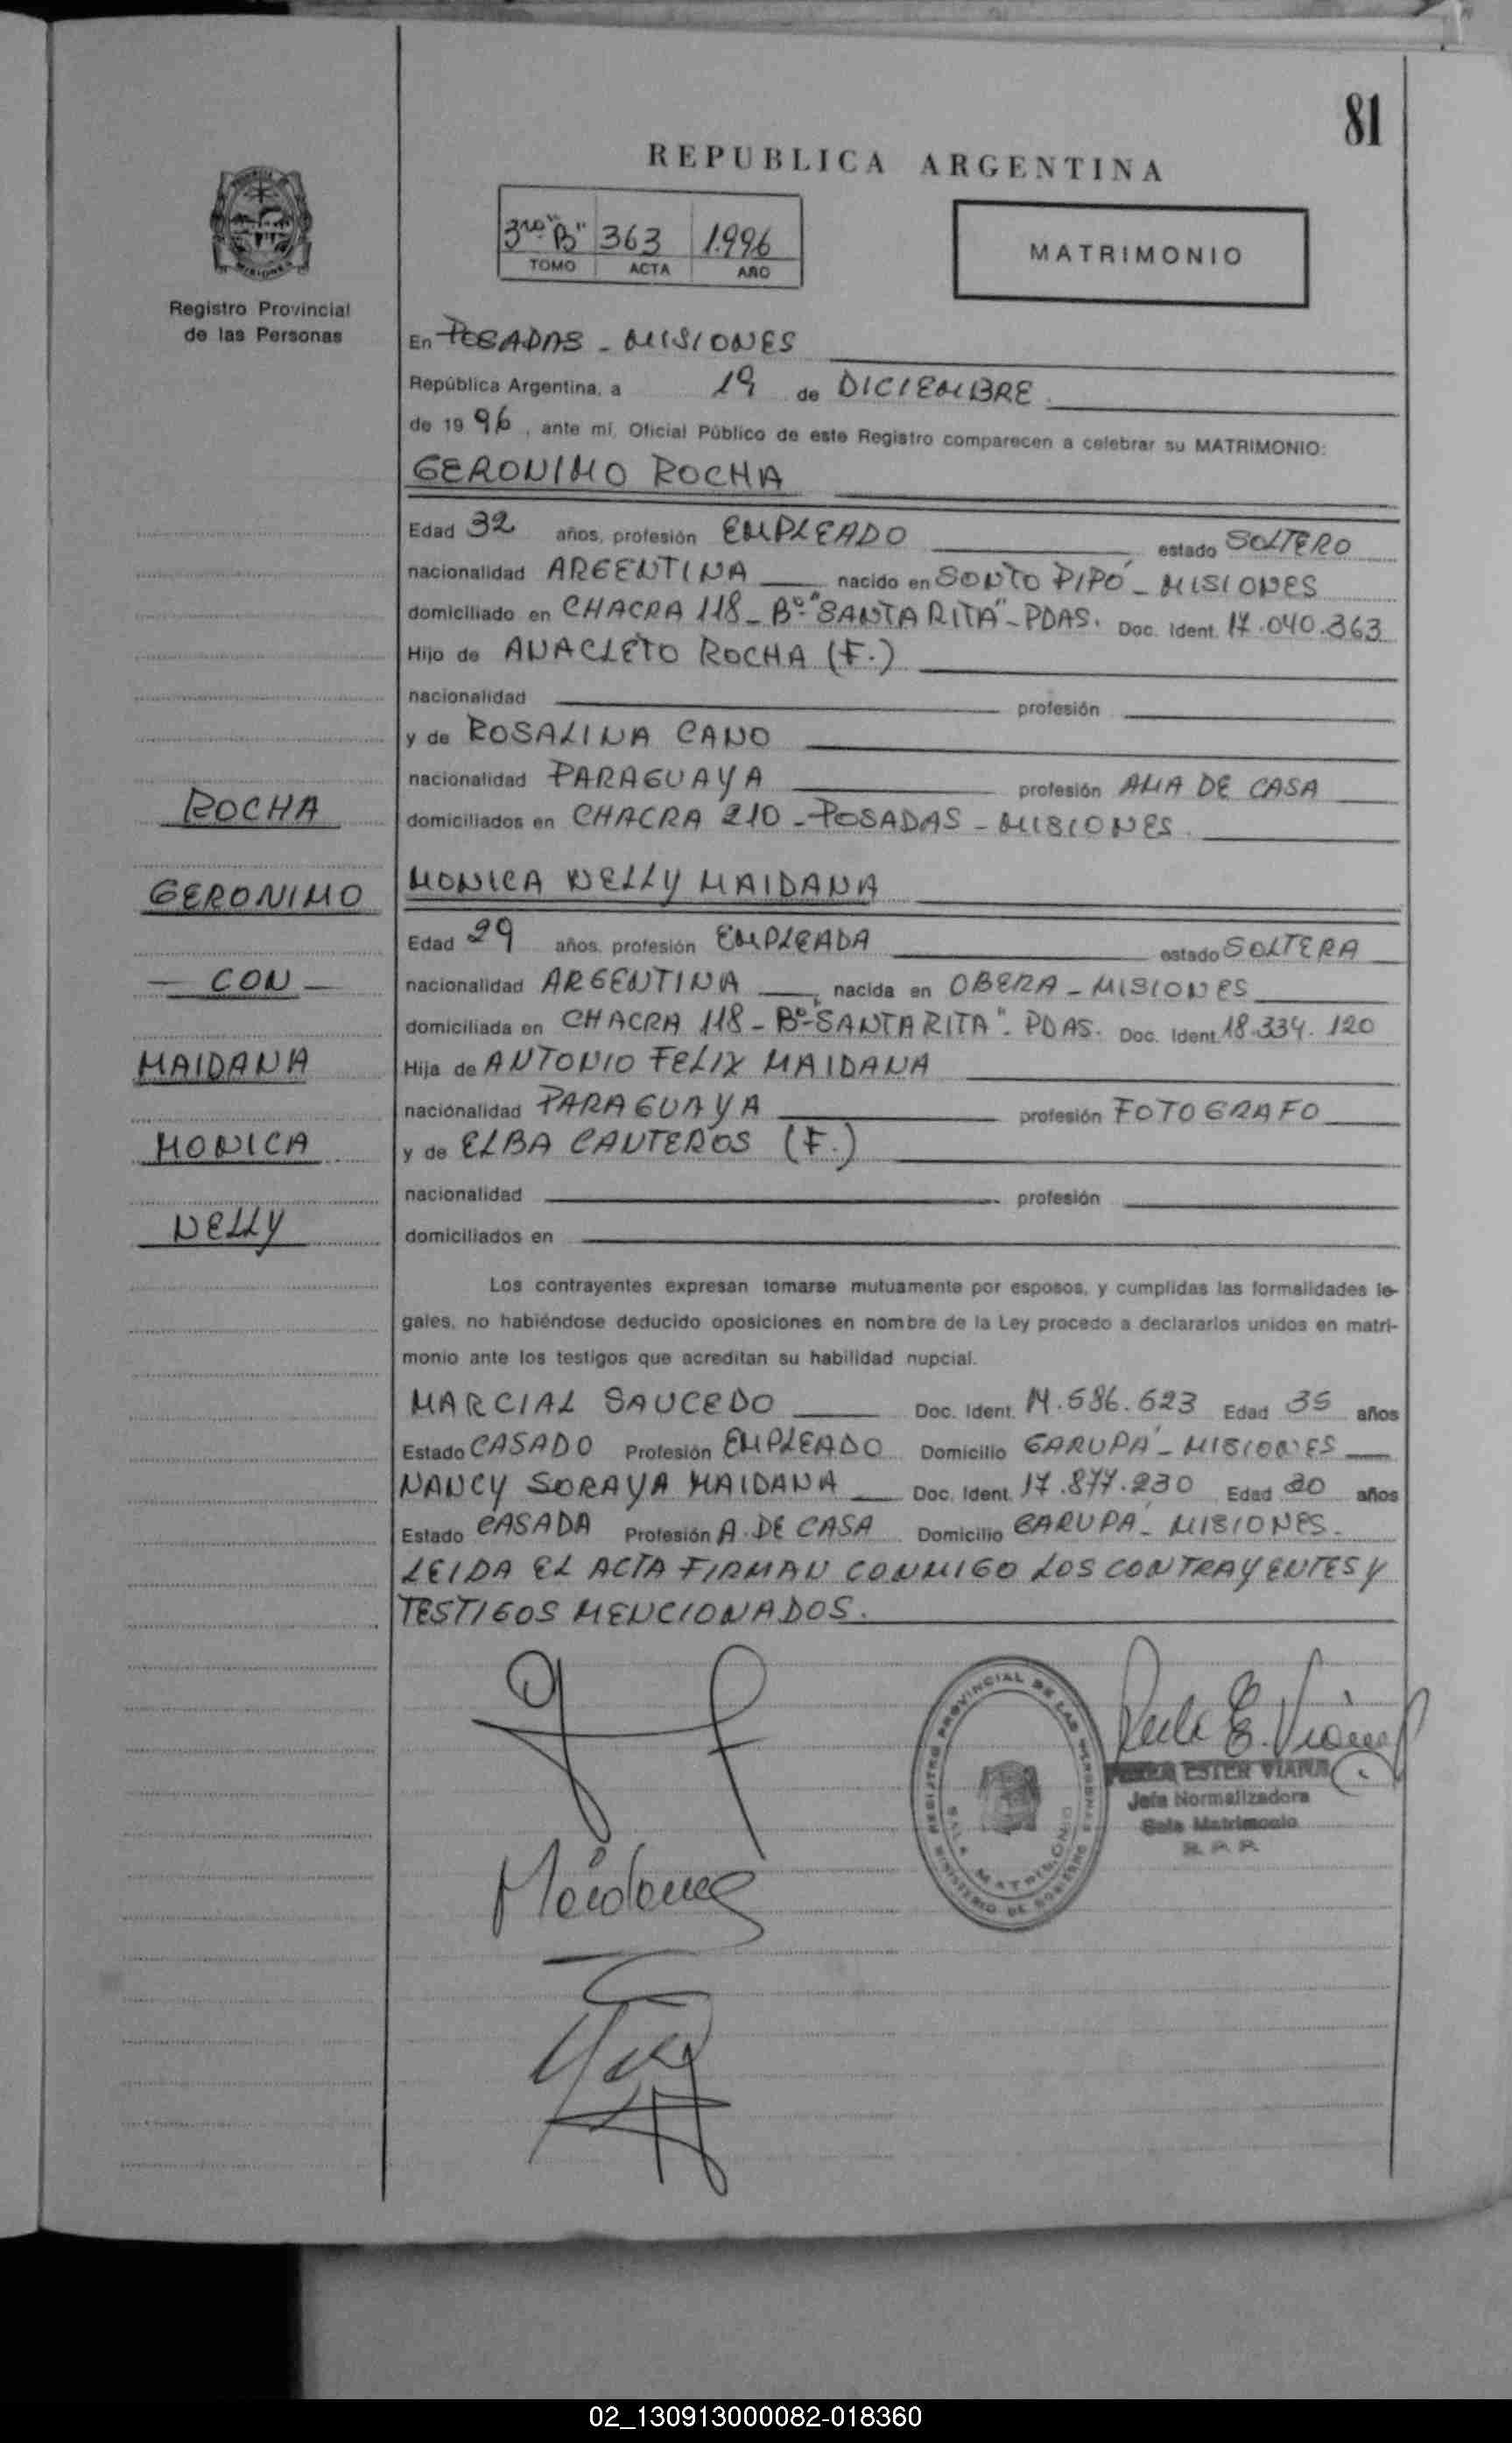 81
REPUBLICA ARGENTINA
3ro "B" 363 1.996
TOMO ACTA AÑO
MATRIMONIO
Registro Provincial
de las Personas
En POSADAS - MISIONES
República Argentina, a 19 de DICIEMBRE
de 1996, ante mí, Oficial Público de este Registro comparecen a celebrar su MATRIMONIO:
GERONIMO ROCHA
Edad 32 años, profesión EMPLEADO estado SOLTERO
nacionalidad ARGENTINA nacido en SONTO PIPÓ - MISIONES
domiciliado en CHACRA 118 - Bº "SANTA RITA" - PDAS. Doc. Ident. 17.040.363
Hijo de ANACLETO ROCHA (F.)
nacionalidad profesión
y de ROSALINA CANO
nacionalidad PARAGUAYA profesión AMA DE CASA
domiciliados en CHACRA 210 - POSADAS - MISIONES
MONICA NELLY MAIDANA
Edad 29 años, profesión EMPLEADA estado SOLTERA
nacionalidad ARGENTINA, nacida en OBERA - MISIONES
domiciliada en CHACRA 118 - Bº "SANTA RITA" - PDAS. Doc. Ident. 18.334.120
Hija de ANTONIO FELIX MAIDANA
nacionalidad PARAGUAYA profesión FOTOGRAFO
y de ELBA CANTEROS (F.)
nacionalidad profesión
domiciliados en
ROCHA
GERONIMO
- CON -
MAIDANA
MONICA
NELLY
Los contrayentes expresan tomarse mutuamente por esposos, y cumplidas las formalidades le-
gales, no habiéndose deducido oposiciones en nombre de la Ley procedo a declararlos unidos en matri-
monio ante los testigos que acreditan su habilidad nupcial.
MARCIAL SAUCEDO Doc. Ident. Edad 35 años
Estado CASADO Profesión EMPLEADO Domicilio GARUPÁ - MISIONES
NANCY SORAYA MAIDANA Doc. Ident. 17.877.230 Edad años
Estado CASADA Profesión A. DE CASA Domicilio GARUPÁ - MISIONES.
LEIDA EL ACTA FIRMAN CONMIGO LOS CONTRAYENTES Y
TESTIGOS MENCIONADOS.
Maidana
REGISTRO PROVINCIAL DE LAS PERSONAS
MINISTERIO DE GOBIERNO
SALA MATRIMONIO
ESTER VIANA
Jefa Normalizadora
Sala Matrimonio
R.P.P.
02_130913000082-018360